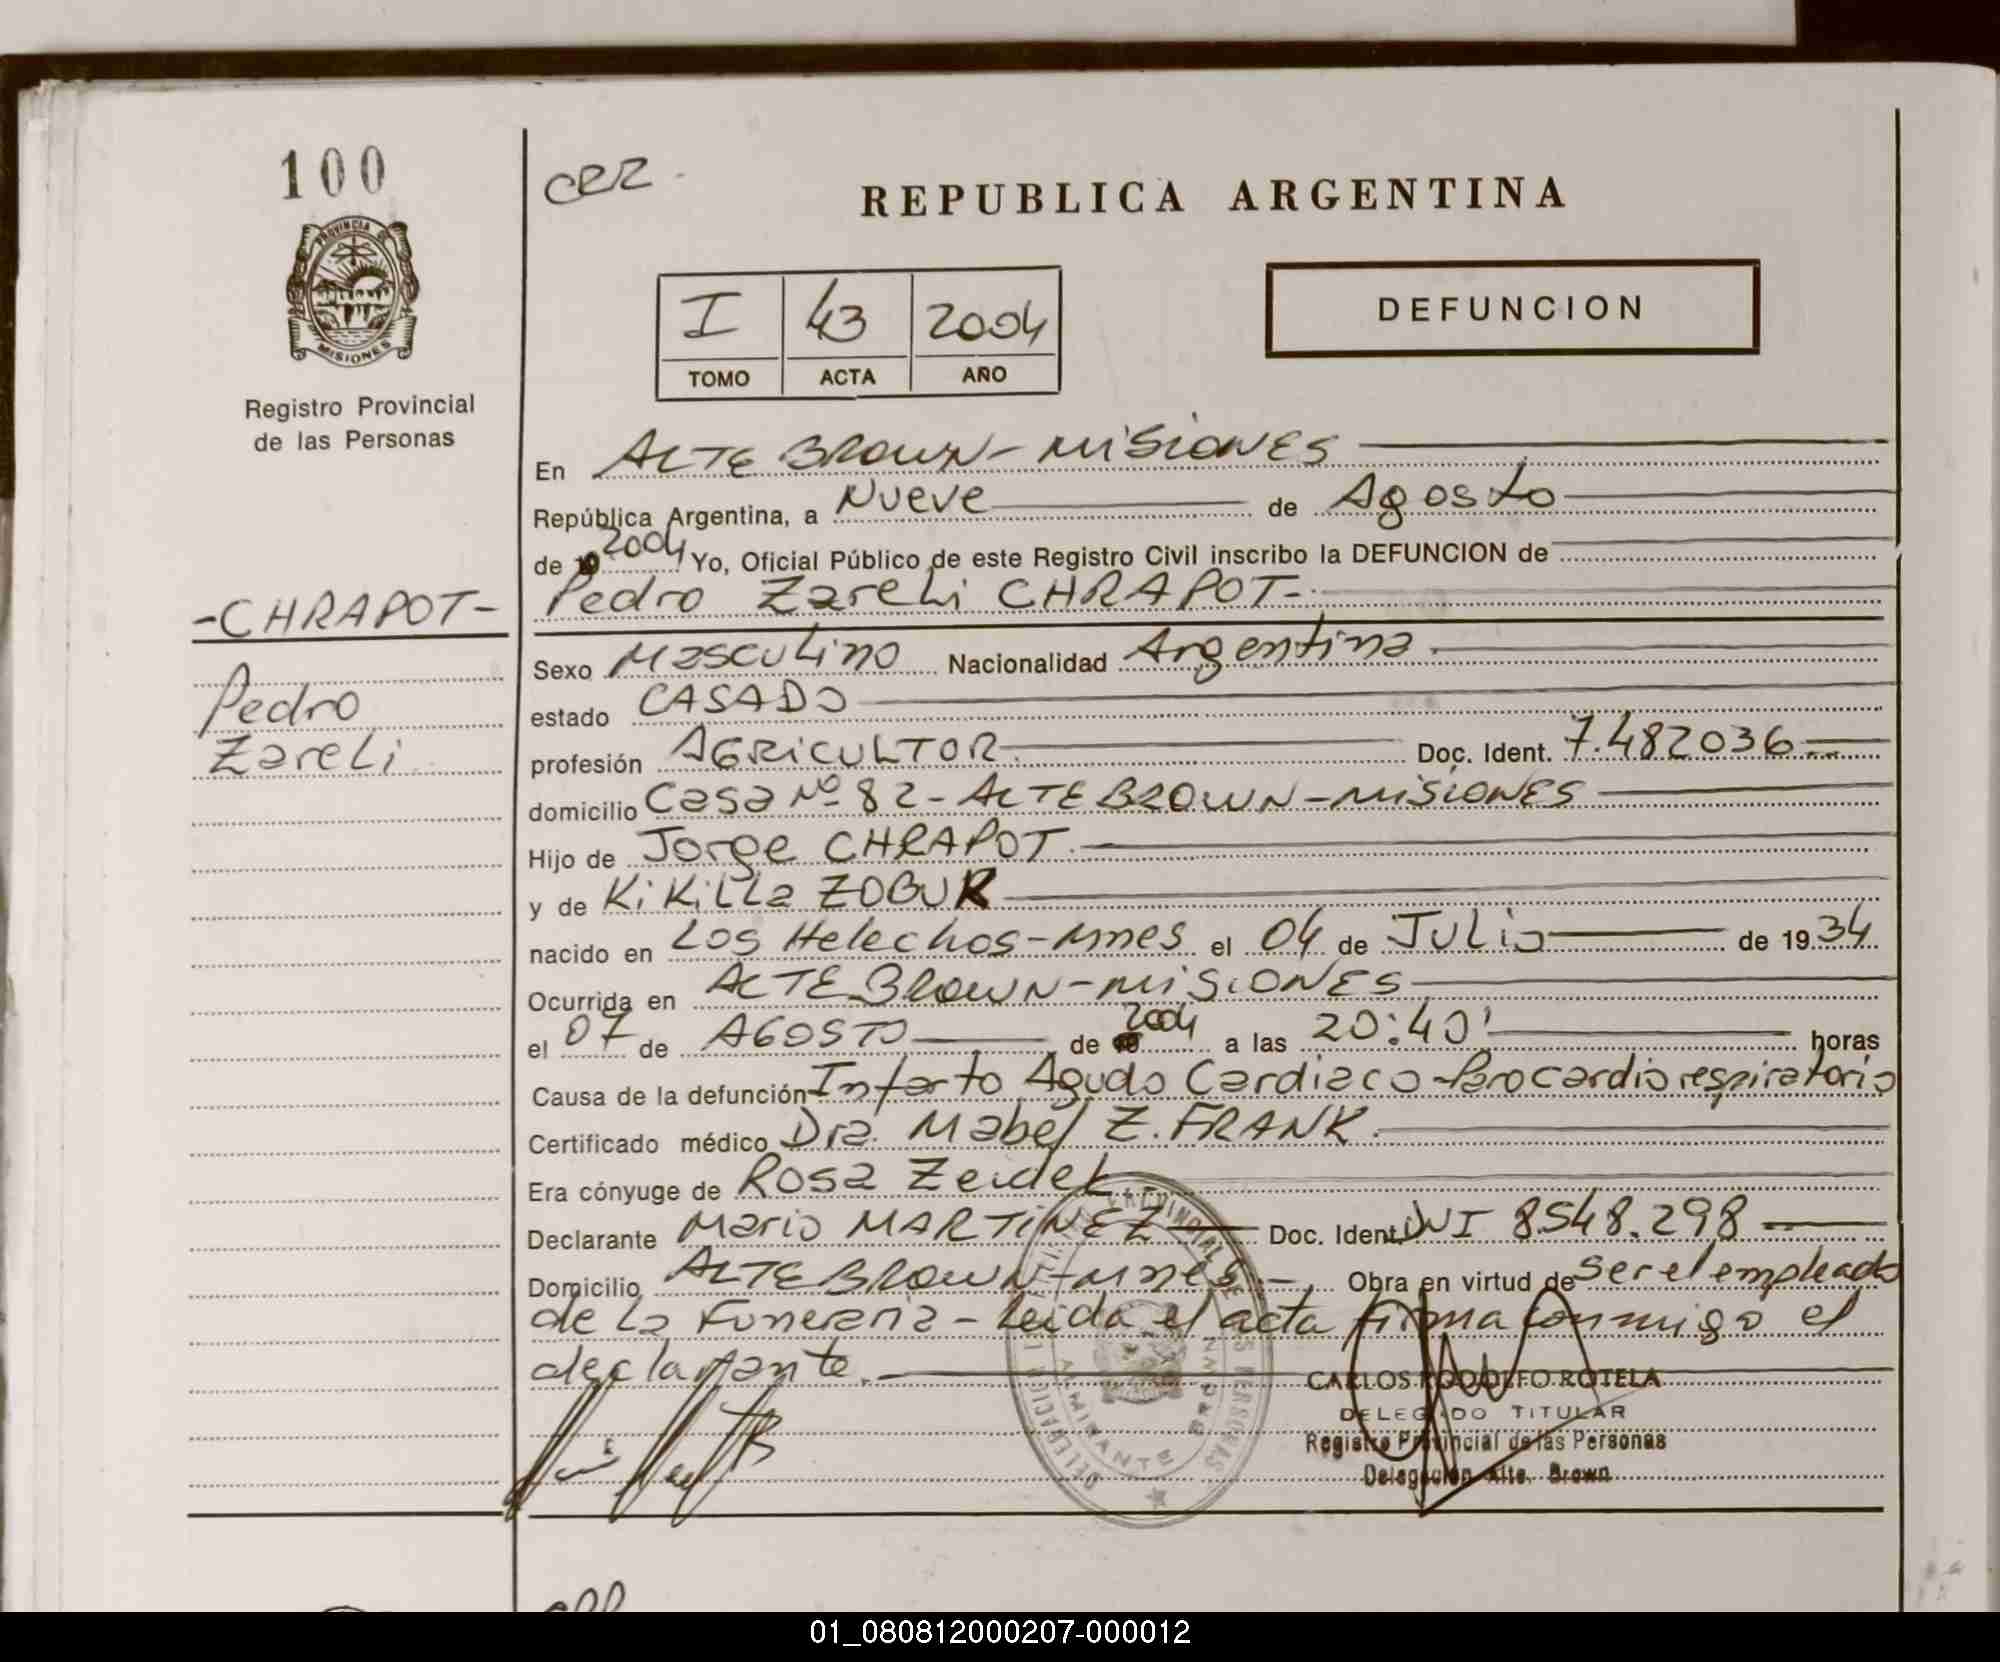 100
PROVINCIA DE
MISIONES
Registro Provincial
de las Personas
-CHRAPOT-
Pedro
Zareli
REPUBLICA ARGENTINA
I 43 2004
TOMO ACTA AÑO
DEFUNCION
En ALTE BROWN - MISIONES
República Argentina, a Nueve de Agosto
de 2004 Yo, Oficial Público de este Registro Civil inscribo la DEFUNCION de
Pedro Zareli CHRAPOT-
Sexo Masculino Nacionalidad Argentina
estado CASADO
profesión AGRICULTOR Doc. Ident. 7.482036
domicilio Casa Nº 82 - ALTE BROWN - MISIONES
Hijo de Jorge CHRAPOT
y de Kikilla ZOBUK
nacido en Los Helechos - Mnes el 04 de Julio de 1934
Ocurrida en ALTE BROWN - MISIONES
el 07 de AGOSTO de 2004 a las 20:40' horas
Causa de la defunción Infarto Agudo Cardiaco - Parocardiorespiratorio
Certificado médico Dra. Mabel Z. FRANK.
Era cónyuge de Rosa Zeidel
Declarante Mario MARTINEZ Doc. Ident. DNI 8.548.298
Domicilio ALTE BROWN - Mnes - Obra en virtud de Ser el empleado
de la Funeraria - Leida el acta firma conmigo el
declarante.
CARLOS RODOLFO ROTELA
DELEGADO TITULAR
Registro Provincial de las Personas
Delegación Alte. Brown
ALMIRANTE BROWN
01_080812000207-000012